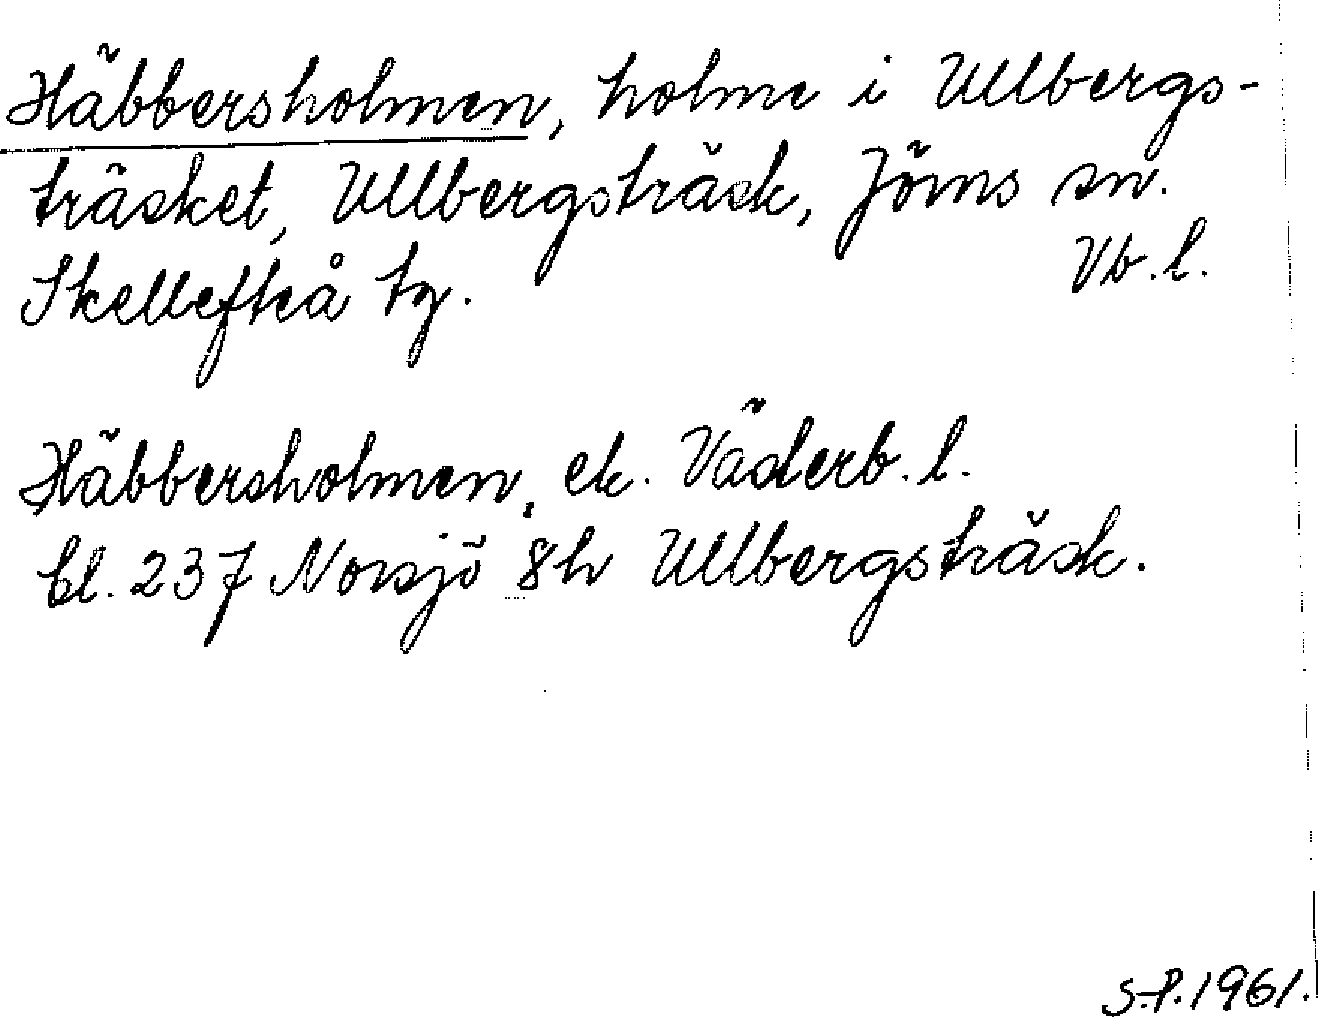 Häbbersholmen, holme i Ullbergs-
träsket, Ullbergsträsk, Jörns sn.
Skellefteå tg. Vb. l.
Häbbersholmen, ek. Väderb. l.
bl. 237 Norsjö 8h Ullbergsträsk.
S.P. 1961.